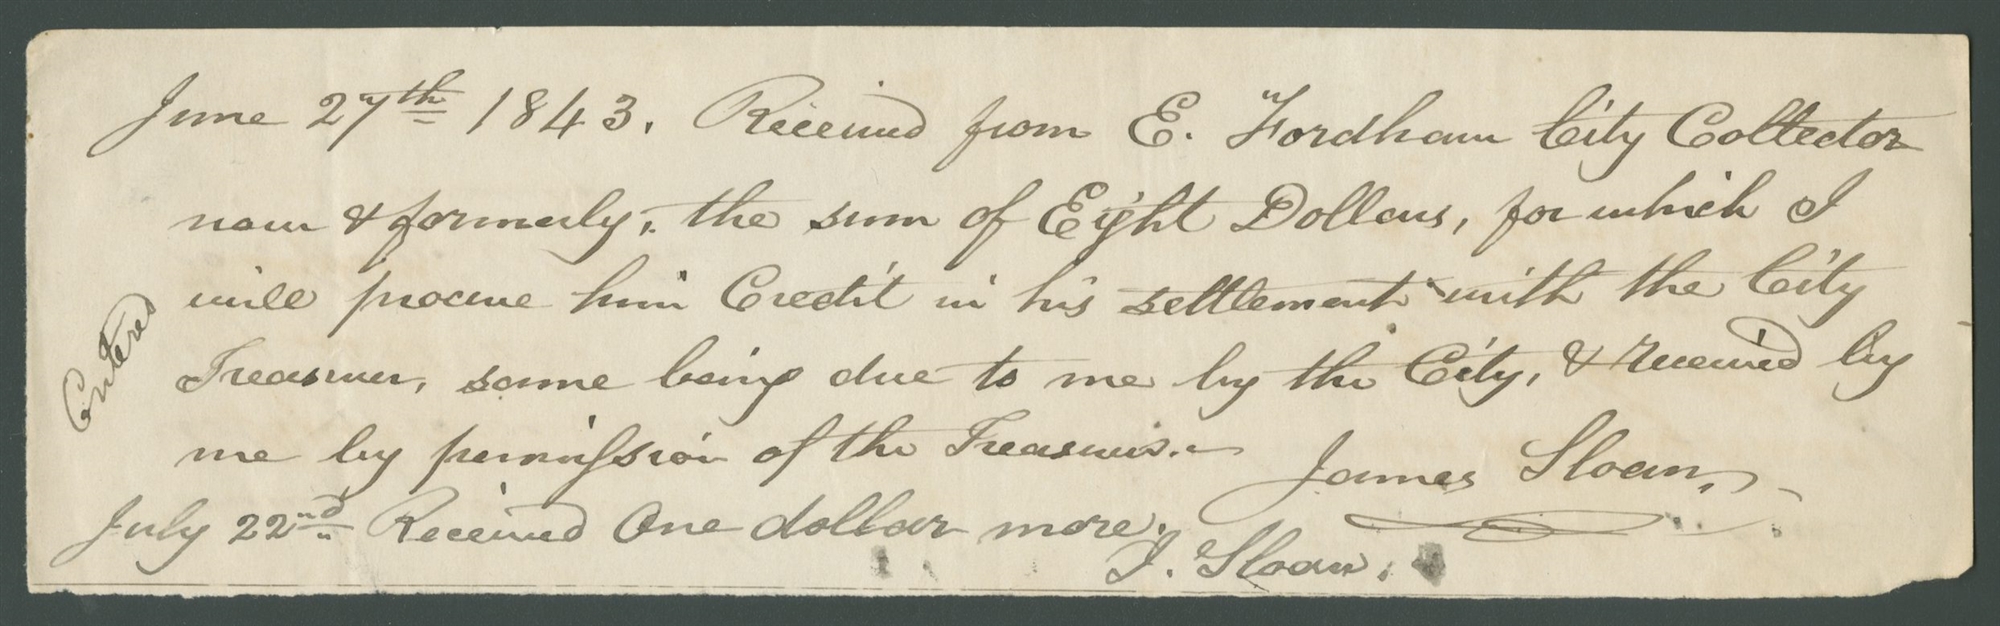 June 27th 1843. Received from E. Fordham City Collector
now & formerly, the sum of Eight Dollars, for which I
will procure him Credit in his settlement with the City
Treasurer, same being due to me by the City, & received by
me by permission of the Treasurer.
James Sloan.
July 22nd Received One dollar more.
J. Sloan.
Entered